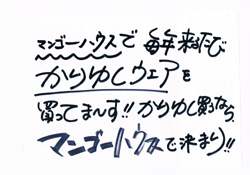 マンゴーハウスで 毎年来るたび
かりゆしウェアを
買ってまーす!! かりゆし買うなら
マンゴーハウスで決まり!!